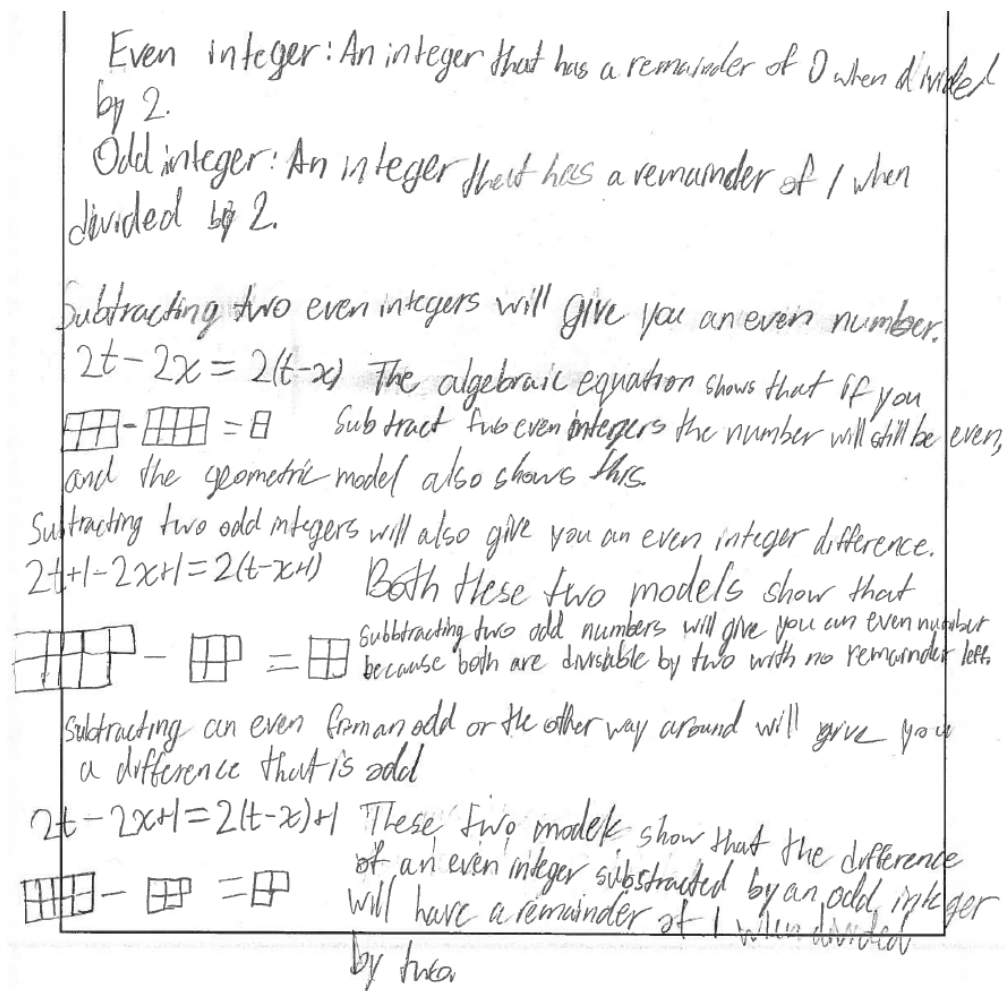 Even integer: An integer that has a remainder of 0 when divided
by 2.
Odd integer: An integer that has a remainder of 1 when
divided by 2.
Subtracting two even integers will give you an even number.
2t - 2x = 2(t-x) The algebraic equation shows that if you
- = subtract two even integers the number will still be even,
and the geometric model also shows this.
Subtracting two odd integers will also give you an even integer difference.
2t+1-2x+1=2(t-x+1) Both these two models show that
- = subbtracting two odd numbers will give you an even number
because both are divisable by two with no remainder left.
Subtracting an even from an odd or the other way around will give you
a difference that is odd
2t-2x+1=2(t-x)+1 These two models show that the difference
- = of an even integer substracted by an odd integer
will have a remainder of 1 when divided
by two.